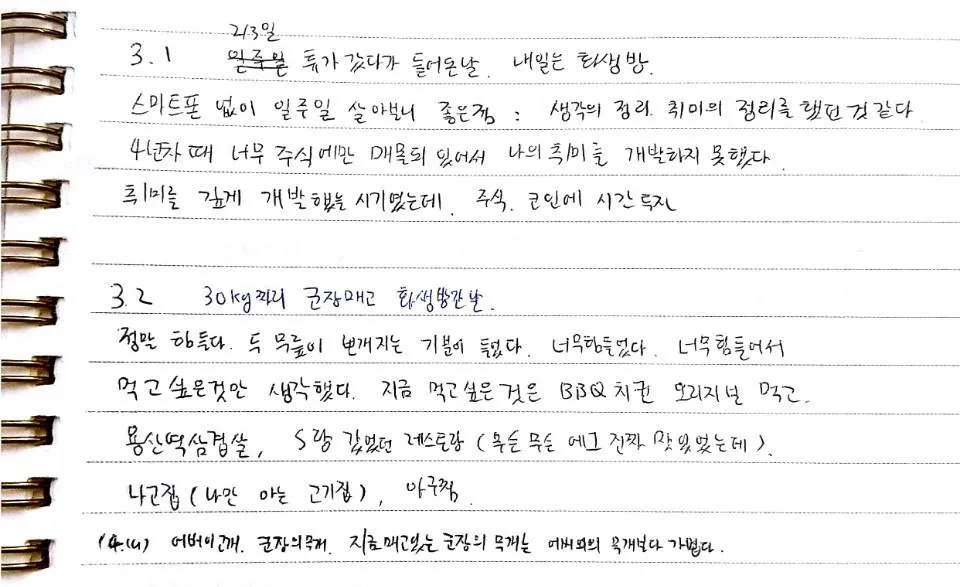 2/3일
3.1 일주일 휴가 갔다가 들어온날. 내일은 화생방.
스마트폰 없이 일주일 살아보니 좋은점 : 생각의 정리. 취미의 정리를 했던 것 같다
4년차 때 너무 주식에만 매몰되 있어서 나의 취미를 개발하지 못했다.
취미를 깊게 개발했을 시기였는데. 주식. 코인에 시간 투자
3.2 30kg짜리 군장매고 화생방간날.
정말 힘들다. 두 무릎이 뽀개지는 기분이 들었다. 너무힘들었다. 너무힘들어서
먹고싶은것만 생각했다. 지금 먹고싶은 것은 BBQ치킨 오리지널 먹고.
용산역삼겹살, S랑 갔었던 레스토랑 (무슨무슨 에그 진짜 맛있었는데).
나고집 (나만 아는 고기집), 아구찜.
어버이고개. 군장의무게. 지금매고있는 군장의 무게는 무게보다 가볍다.